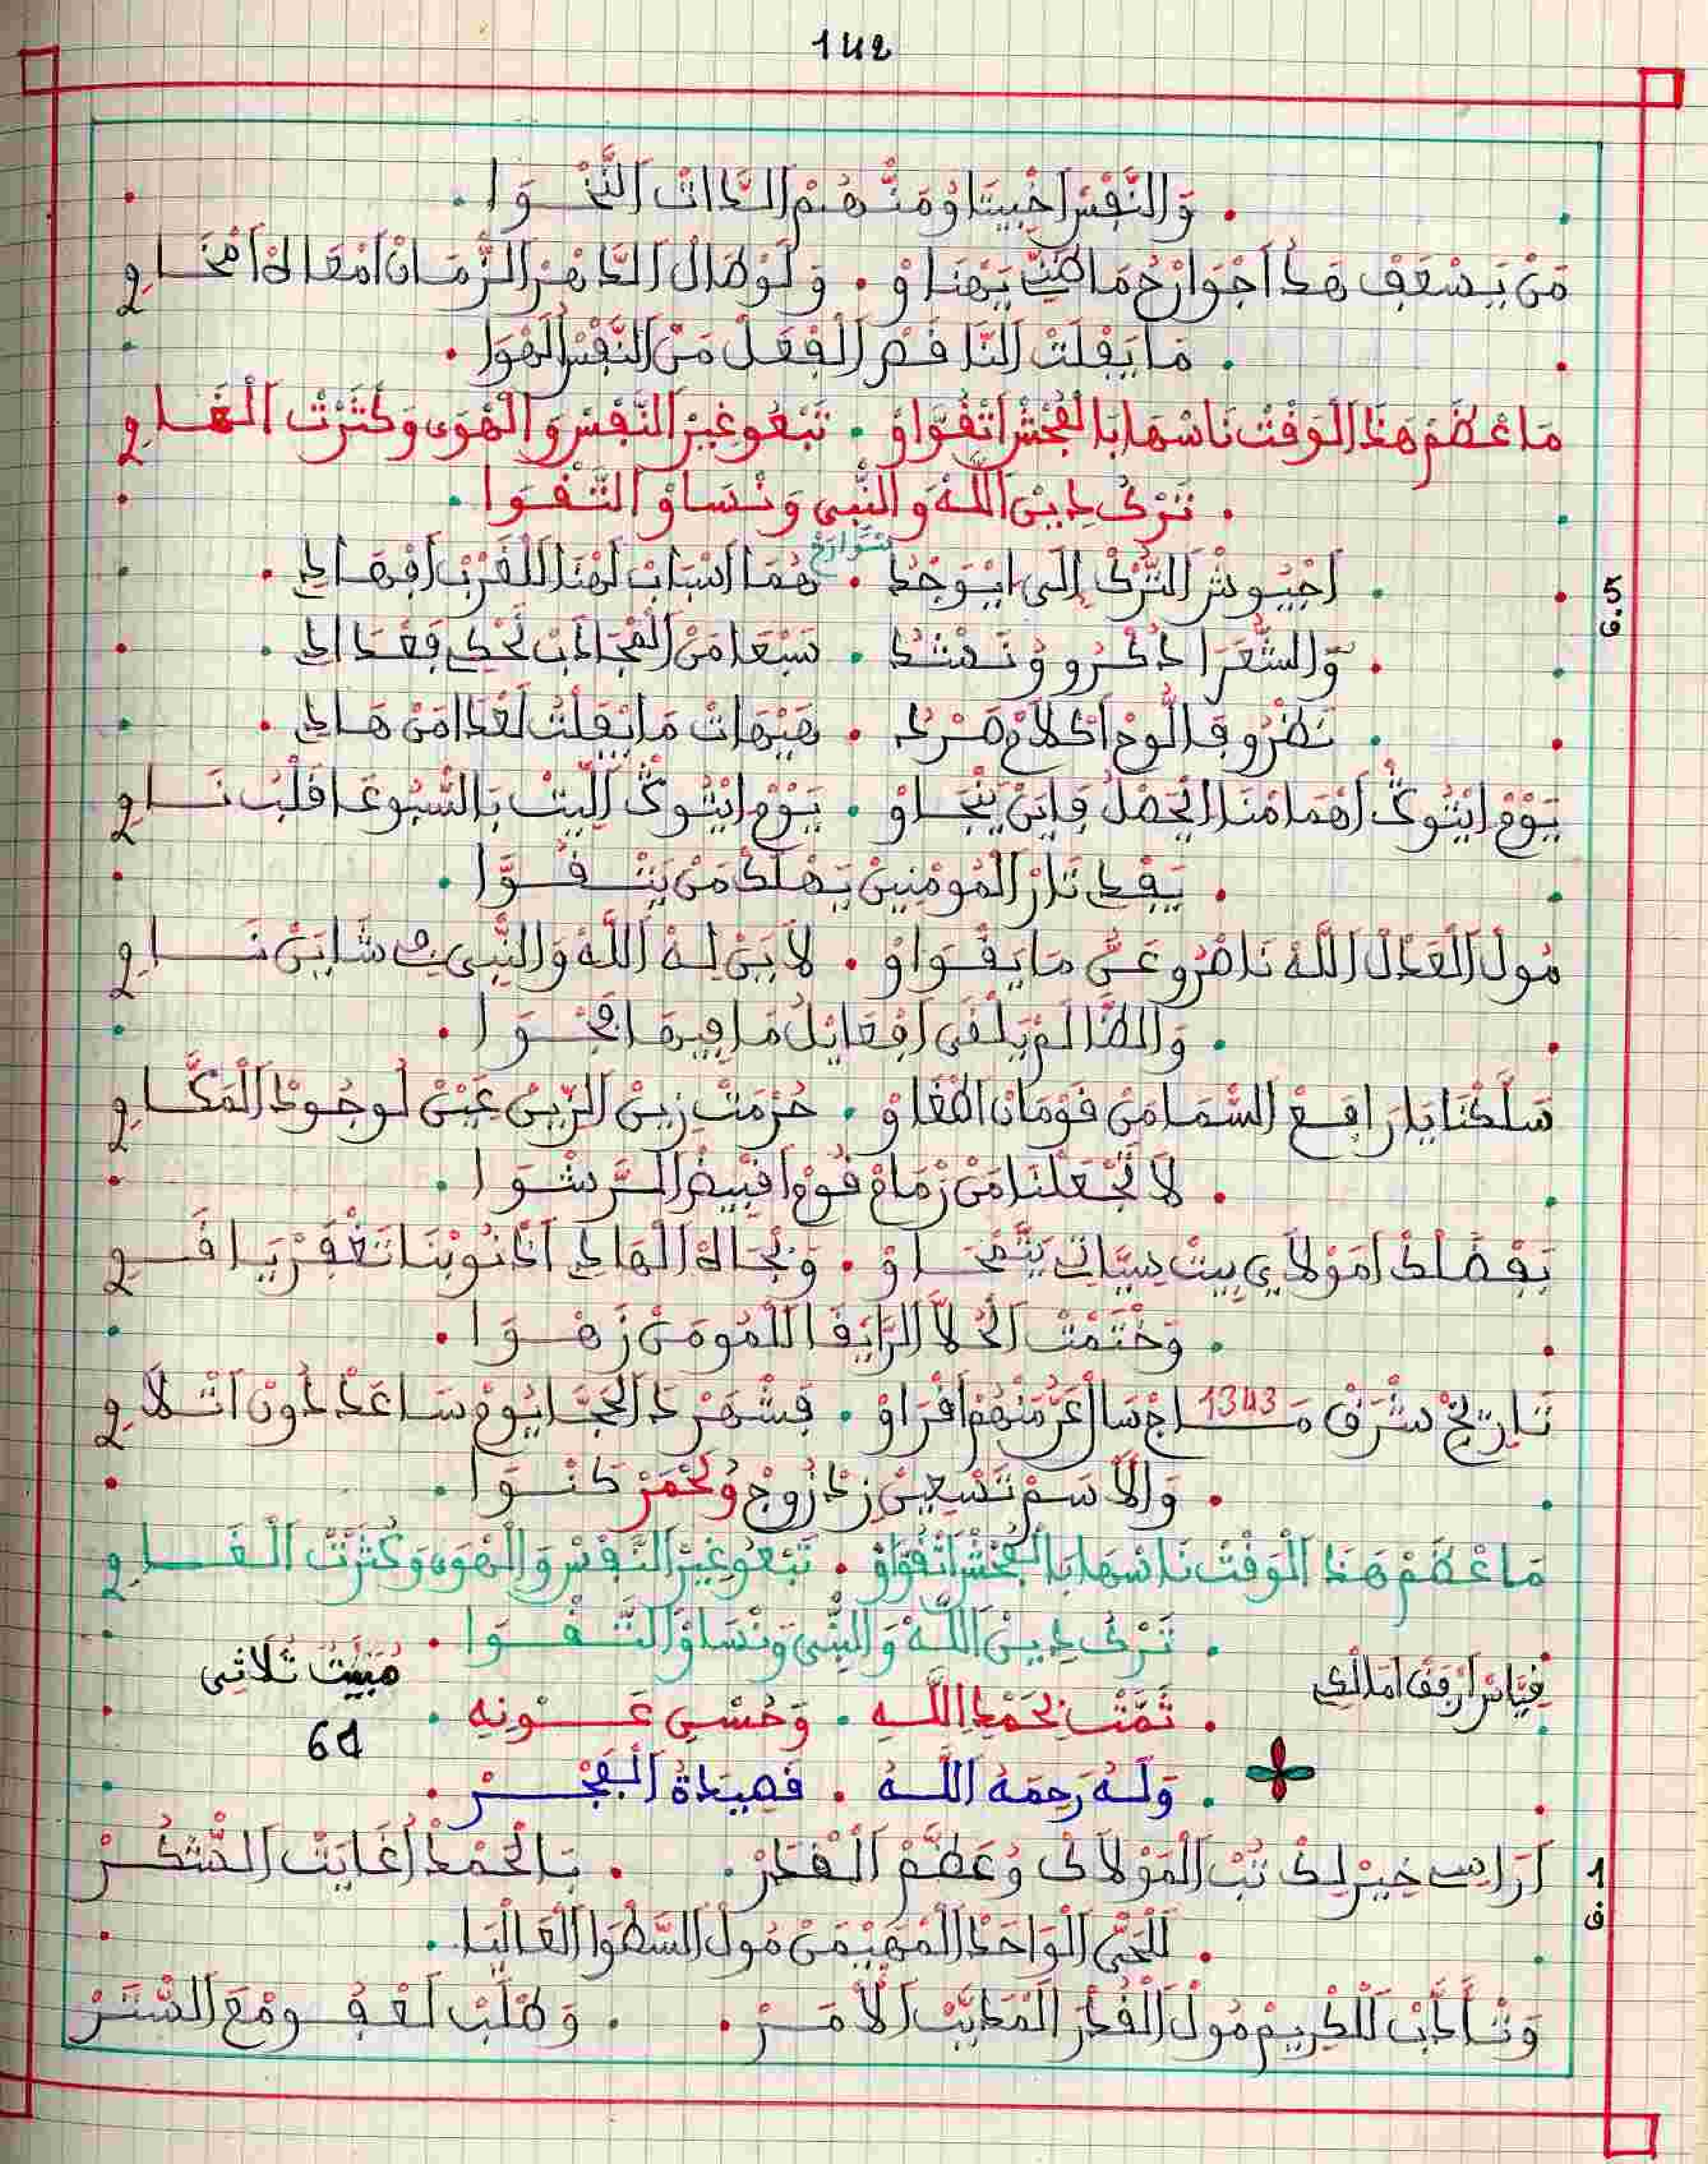 142
وَالنَّفْسْ اخْبِيتَا وُمَنْهُمْ الدَّاتْ النَّخْوَا
مَنْ يَسْعَفْ هَدْ اجْوَارْحُ مَاظَنِّي يَهْنَاوْ . وَلَوْطَالْ الدَّهْرْ الزَّمَانْ امْعَالَهْ امْخَاوِي
مَايَفْلَتْ النَّاقَصْ الْفْعَلْ مَنْ النَّفْسْ الْهْوَا
مَاعْظَمْ هَذَا الْوَقْتْ نَاسْهَا بَالْفُحْشْ اتْقْوَّاوْ . تَبْعُو غِيرْ النَّفْسْ وَالْهْوَى وَكَثْرَتْ الْغَاوِي
تَرْكُ دِينْ اللَّهْ وَالنْبِي وَنْسَاوْ التَّقْوَا
5 ق.
اجْيُوشْ التَّرْكْ إلَى ايْوَجْدُ . هُمَا اسْبَابْ لَهْنَا لَلْغَرْبْ افْهَادِي
شَوَارَعْ
وَالشُّعَرَا دَكْرُو وُنَشْدُ . سَبْعَا مَنْ الْعْجَادَبْ تَحْكِي فَعْدَادِي
نَظْرُو فَالُّوحْ اكْلَامْ صَرْدُ . هَيْهَاتْ مَايَفْلَتْ لَعْدَا مَنْ هَادِي
يَوْمْ ايْتُوكْ اهْمَامْنَا الْحَصْلُ فَايَنْ يَنْجَاوْ . يَوْمْ ايْتُوكْ اللِّيثْ بَالسّْبُوعَا قَلْبُ نَاوِي
يَفْدِي تَارْ الْمُومْنِينْ يَهْلَكْ مَنْ يَتْقَوَّا
مُولْ الْعَدْلْ اللَّهْ نَاصْرُو عَنُّ مَايَقْوَاوْ . لَابَنْ لِهْ اللَّهْ وَالنّْبِي فِي شَايَنْ نَاوِي
وَالظَّالَمْ يَلْقَى افْعَايْلُ مَافِيهَا فَجْوَا
سَلَّكْنَا يَارَافَعْ السّْمَا مَنْ قُومَانْ الطْغَاوْ . حُرْمَتْ زِينْ الزِّينْ عَيْنْ لُوجُودْ الْمَكَّاوِي
لَا تَجْعَلْنَا مَنْ زْمَامْ قُومْ اقْبِيضْ الرَّشْوَا
بَفْضْلَكْ امَوْلَايَ بِيتْ سِيَّاتِي يَتَّمْحَاوْ . وَبْجَاهْ الْهَادِي ادْنُوبْنَا تَغْفَرْ يَا قَوِي
وَخْتَمْتْ الْحُلَّا الرَّايْقَا اللَّمُومَنْ زَهْوَا
تَارِيخْ شْرَقْ مَاجْسَالْ عَزّْ مَنْهُمْ اقْرَاوْ . فَشْهَرْ دَالْحَجَّا يُومْ سَاعَدْ دُونْ اتْلَاوِي
1343
وَالَاسَمْ تَسْعِينْ زِدْ زُوجْ وُلَحْمَرْ كَنْوَا
مَاعْظَمْ هَذَا الْوَقْتْ نَاسْهَا بَالْفُحْشْ اتْقْوَاوْ . تَبْعُو غِيرْ النَّفْسْ وَالْهْوَى وَكَثْرَتْ الْغَاوِي
تَرْكُ دِينْ اللَّهْ وَالنْبِي وَنْسَاوْ التَّقْوَا
مْبَيْتْ ثُلَاثِي
فِيَّاشْ ارْفَقْ امَالْكِي
ثَمَّتْ بحَمْدِ اللَّه . وَحُسْنِ عَوْنِهِ
61
وَلَهُ رَحِمَهُ اللَّهُ . قَصِيدَةُ الْفَجْر
1 ق
آرَاسِي خِيرْ لِكْ تُبْ الْمَوْلَاكْ وُعَظَّمْ الْقْدَرْ . بَالْحَمْدْ أُغَايَتْ الشّْكُرْ
لَلْحَيْ الْوَاحَدْ الْمْهَيْمَنْ مُولْ السَّطْوَا الْعَالْيَا
وَتْأَدَّبْ لَلْكْرِيمْ مُولْ الْقُدْرَا الْمْدَبَّرْ الَامَرْ . وَطْلَبْ لَعْفُو وُمْعَ السّْتَرْ